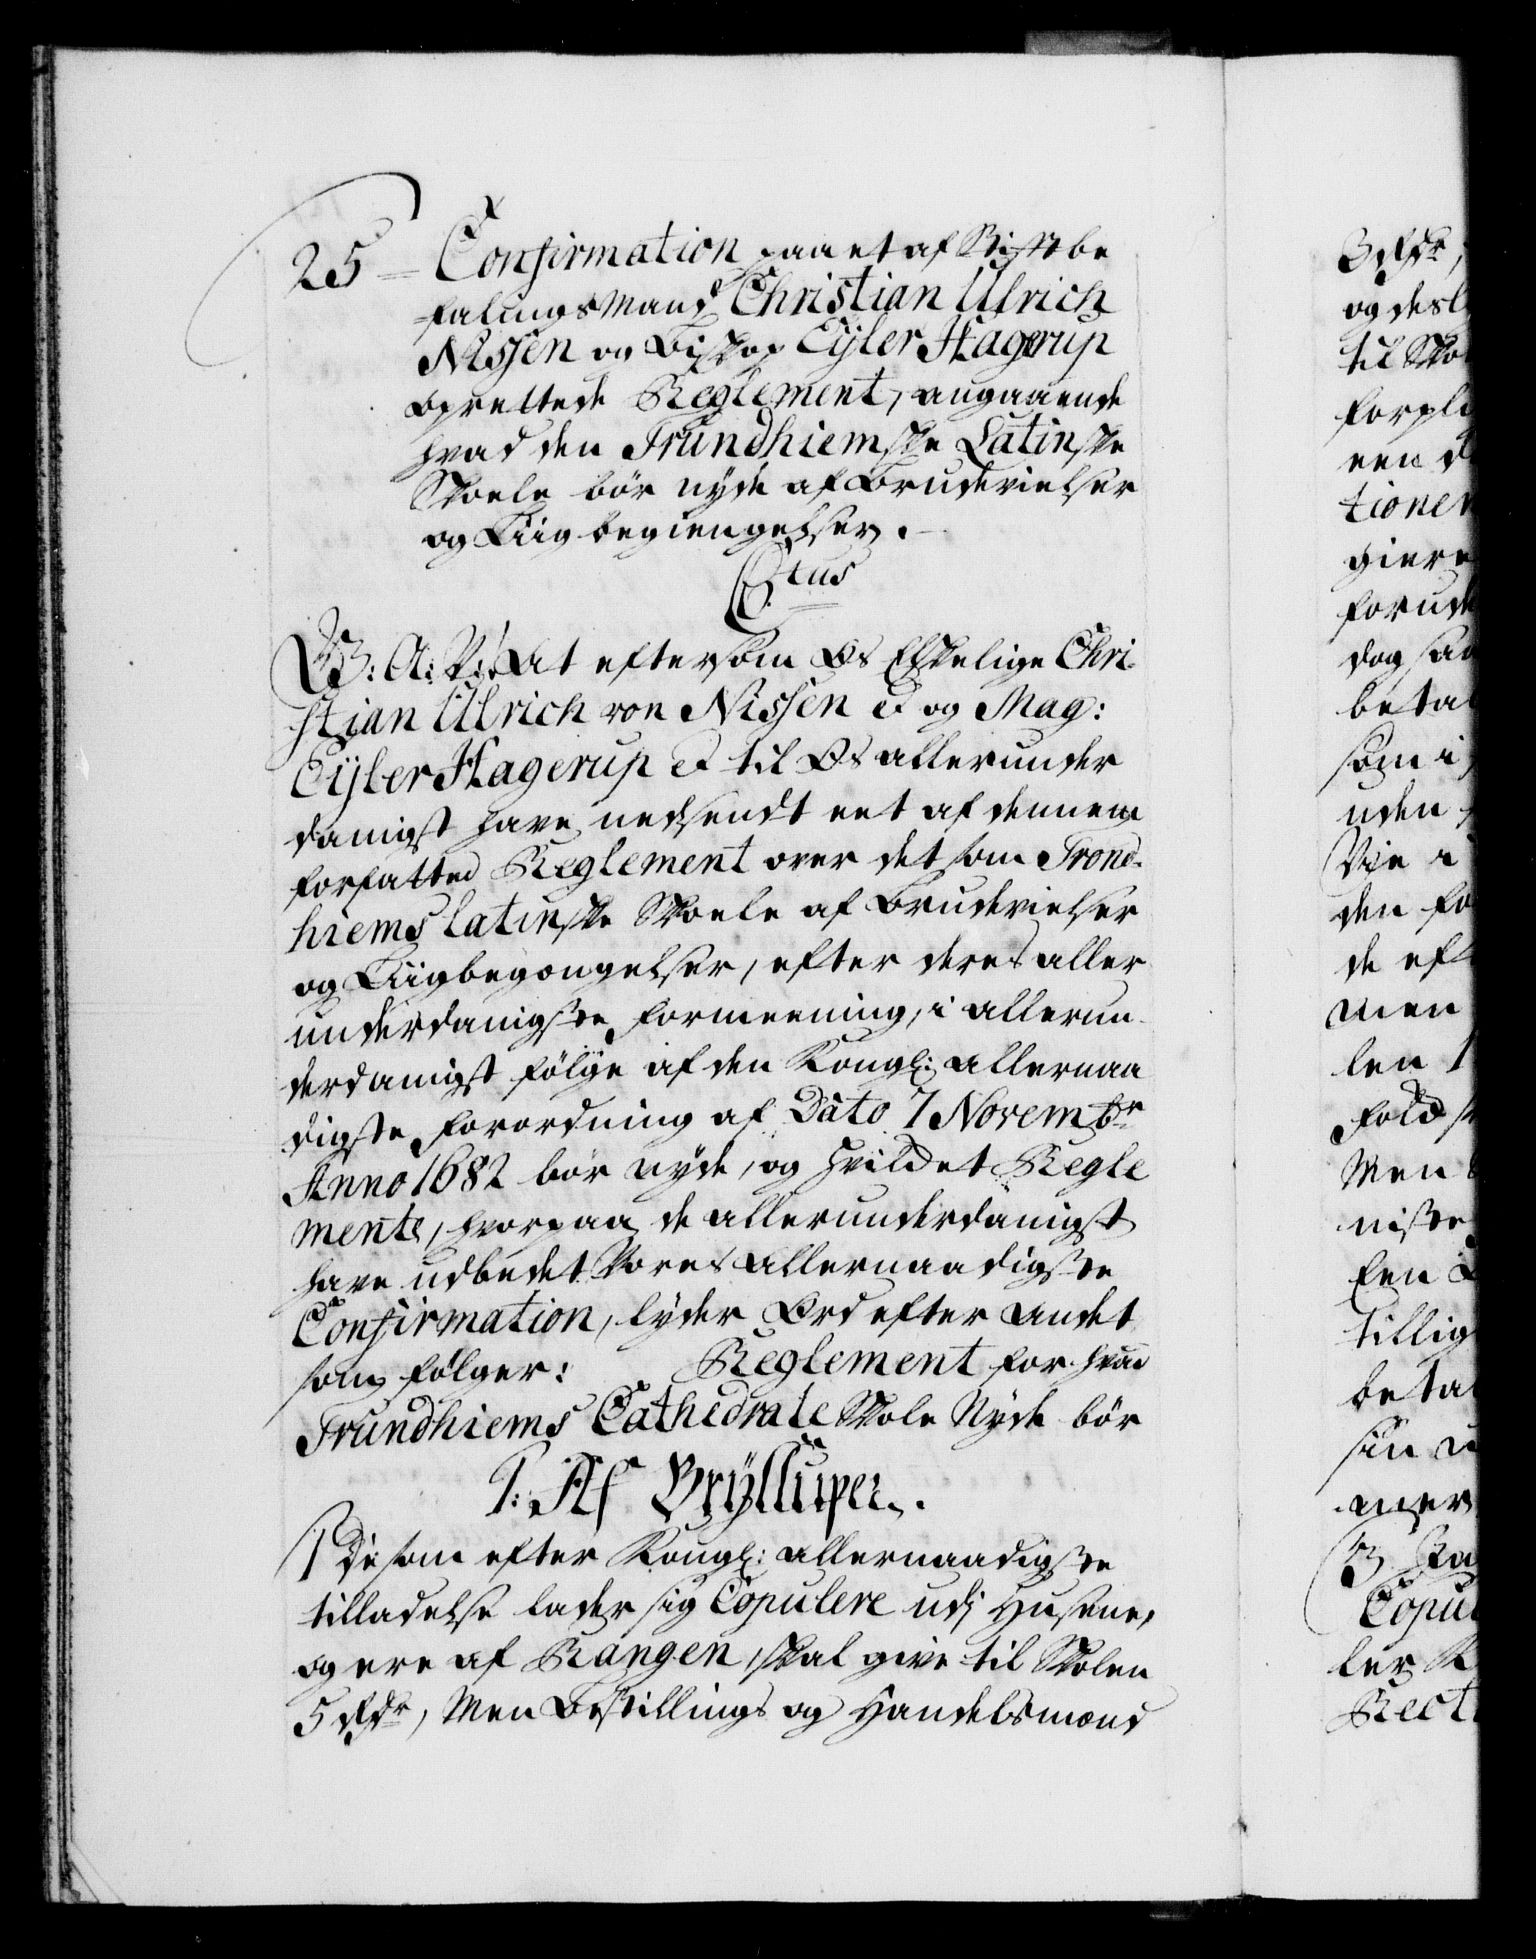 25 = Confirmation paa et af Stiftbe
-falingsmand Christian Ulrich
Nissen og Biskop Eyler Hagerup
oprettede Reglement, angaaende
hvad den Trundhiemske Latinske
Skoele bør nyde af Brudevielser
og Liigbegiengelser.
Ctus
W: A: V: At eftersom Os Elskelige Chri-
stian Ulrich von Nissen et og Mag:
Eyler Hagerup et til Os allerunder
danigst have nedsendt eet af dennem
forfatted Reglement over det som Trond-
hiems latinske Skoele af Brudevielser
og Liigbegongelser, efter deres aller
underdanigste formeening, i allerun-
derdanigst følge af den Kongl: allernaa
digste forordning af Dato 7 Novembr
Anno 1682 bør nyde, og hvildet Regle
mente, hvorpaa de allerunderdanigst
have udbedet Vores allernaadigste
Confirmation, lyder Ord efter andet
som følger: Reglement for hvad
Trundhiems Cathedrale Skole Nyde bør
1: Af Bryllupper.
1 De som efter Kongl: allernaadigste
tilladelse lader sig Copulere udj Husene,
og ere af Rangen, skal give til Skolen
5 Rdr, Men Bestillings og Handelsmænd
3 Rdr,
og des
til Sko
forpli
een d
tionen
giere
forud
dog saa
betal
som i
uden
Vie i
den fo
de eft
men
len 1
fold
Men
niste
Een
tillig
betal
sin
mer
3
Copul
ler
Rect